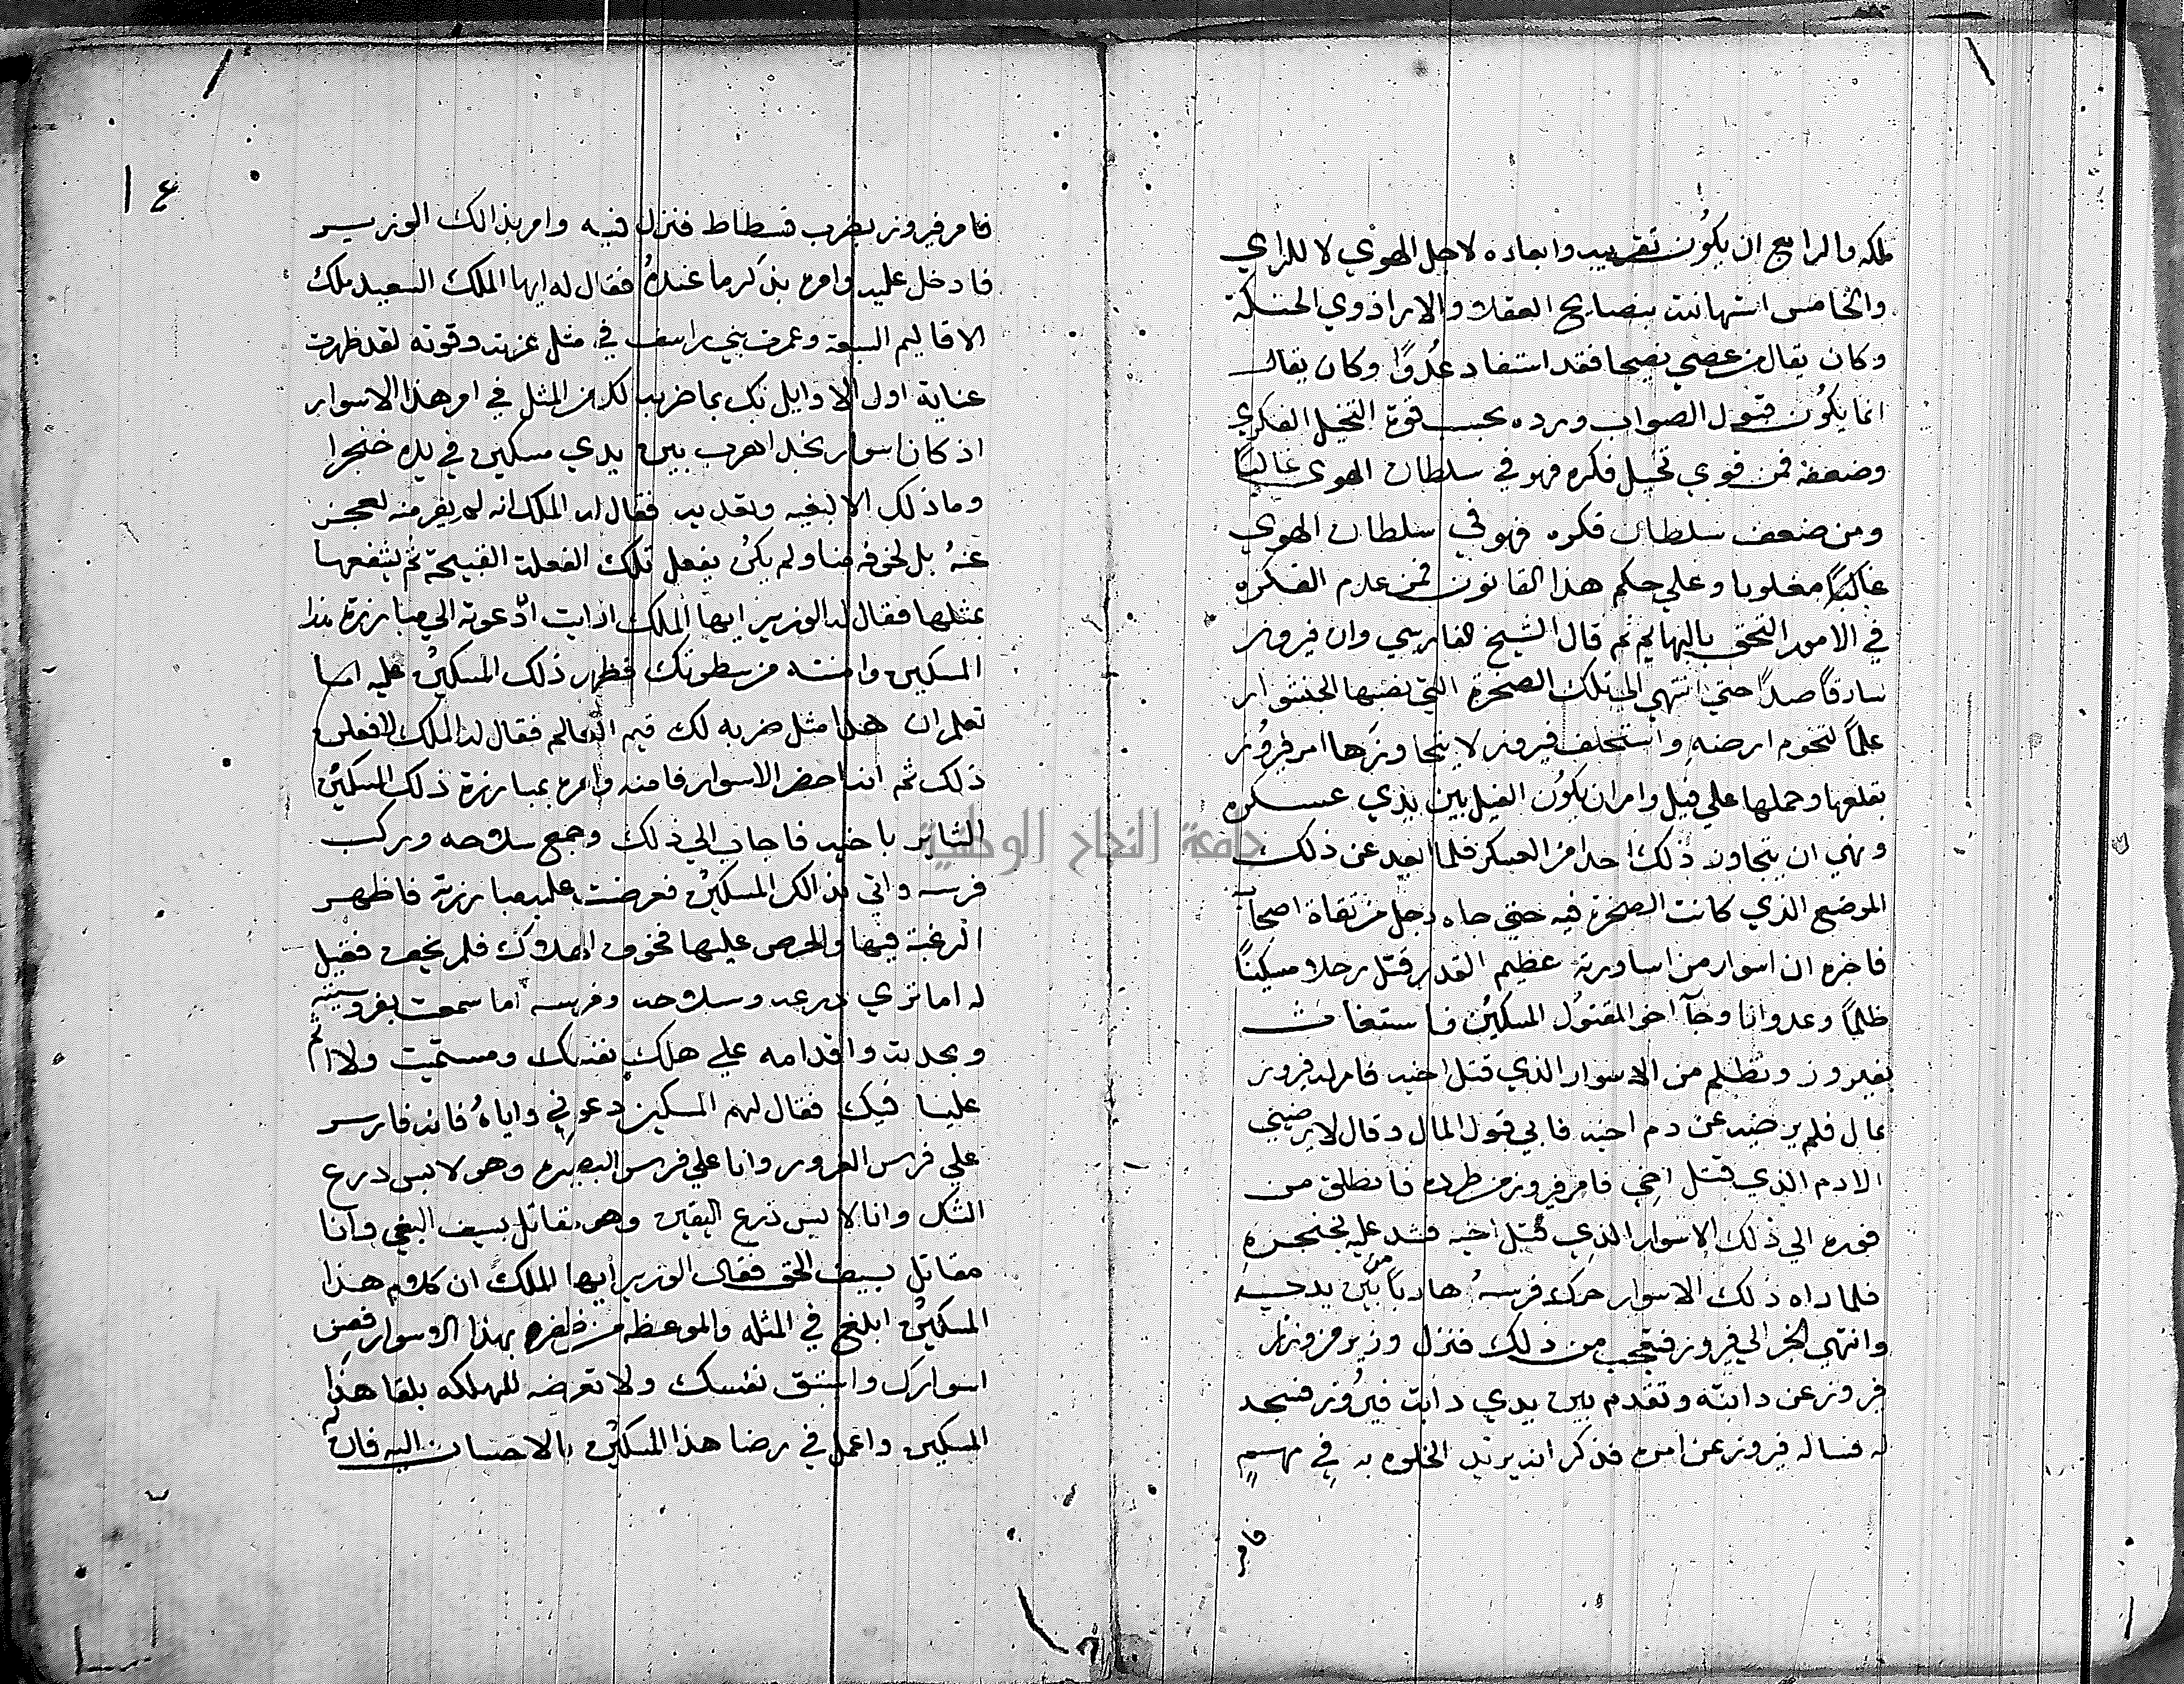 ملكه والرابع ان يكون تقريبه وابعاده لاجل الهوي لا للراي
والخامس استهانته بنصايح العقلا والارا ذوي الحنكة
وكان يقال من عصي نصيحا فقد استفاد عُدوًا وكان يقال
انما يكون قبول الصواب ورده بحسب قوة التخيل الفكري
وضعفه فمن قوي تخيل فكره فهو في سلطان الهوي غالبًا
ومن ضعف سلطان فكره فهو في سلطان الهوي
غالبًا مغلوبا وعلي حكم هذا القانون فمن عدم الفكره
في الامور التحق بالبهايم ثم قال الشيخ الفارسي وان فيروز
سار قاصدًا حتي انتهي الي تلك الصخرة التي نصبها الخنشوار
علمًا لتخوم ارضه واستحلف فيروز لا يتجاوزها امر فيروز
بقلعها وحملها علي فيل وامر ان يكون الفيل بين يدي عسكره
ونهي ان يتجاوز ذلك احدا من العسكر فلما ابعد عن ذلك
الموضع الذي كانت الصخرة فيه حتي جاه رجل من ثقاة اصحابه
فاخبره ان اسوار من اساورته عظيم القدر قتل رجلا مسكينًا
ظلمًا وعدوانا وجآ اخو المقتول المسكين فاستغاث
بفيروز وتظلم من الاسوار الذي قتل اخيه فامر له فيروز
بمال فلم يرضيه عن دم اخيه فابي قبول المال وقال لا يرضيني
الا دم الذي قتل اخي فامر فيروز من طرده فانطلق من
فوره الي ذلك الاسوار الذي قتل اخيه فشد عليه بخنجره
فلما راه ذلك الاسوار حرك فرسهُ هاربًا من بين يديه
وانتهي الخبر الي فيروز فتعجب من ذلك فنزل وزير من وزرا
فيروز عن دابته وتقدم بين يدي دابت فيروز فسجد
له فساله فيروز عن امره فذكر انه يريد الخلوه به في مهم
فامر
١٤
فامر فيروز بضرب فسطاط فنزل فيه وامر بذالك الوزير
فادخل عليه وامره بذكر ما عنده فقال له ايها الملك السعيد ملك
الاقاليم السبعة وعمرت بني راسف في مثل عزته وقوته لقد ظهرت
عناية اول الاوايل بك بما ضرب لك من المثل في امر هذا الاسوار
اذ كان اسوار نجد اهرب بين يدي مسكين في يده خنجرا
وما ذلك الا لبغيه وتعديه فقال له الملك انه لم يفر منه لعجز
عنهُ بل لخوفه منا ولم يكن يفعل تلك الفعلة القبيحة ثم يشفعها
بمثلها فقال له الوزير ايها الملك ارايت ان دعوته الي مبارزة هذا
المسكين وامنته من سطوتك فظهر ذلك المسكين عليه اما
تعلم ان هذا مثل ضربه لك قيم العالم فقال له الملك لافعلن
ذلك ثم انه احضر الاسوار فامنه وامره بمبارزة ذلك المسكين
الثاير باخيه فاجاب الي ذلك وجمع سلاحه وركب
فرسه واتي بذالك المسكين فعرضت عليه مبارزته فاظهر
الرغبة فيها والحرص عليها فخوف الهلاك فلم يخف فقيل
له اما تري درعه وسلاحه وفرسه اما سمعت بفروسيته
ونجدته واقدامه علي هلك نفسك ومستميت ولا اثم
علينا فيك فقال لهم المسكين دعوني واياهُ فانه فارس
علي فرس الغرور وانا علي فرس البصيره وهو لابس درع
الشك وانا لابس درع اليقين وهو مقاتل بسيف البغي وانا
مقاتل بسيف الحق فقال الوزير ايها الملك ان كلام هذا
المسكين ابلغ في المثله والموعظه من ظفره بهذا الاسوار فصن
اسوارك واستبق نفسك ولا تعرضه للهلكه بلقا هذا
المسكين واعمل في رضا هذا المسكين بالاحسان اليه فان
جامعة النجاح الوطنية